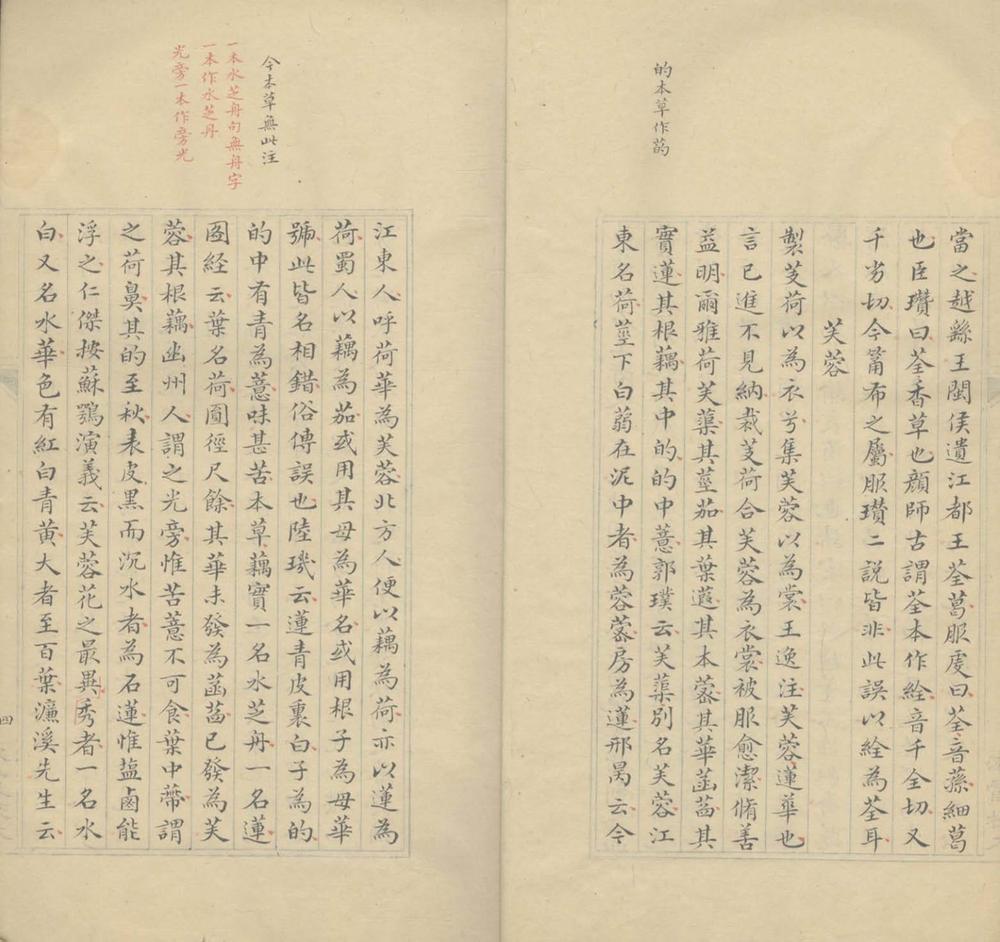 的本草作菂
當之越繇王閩侯遺江都王荃葛服虔曰荃音蓀細葛
也臣瓚曰荃香草也顔師古謂荃本作絟音千全切又
千劣切今筩布之屬服瓚二説皆非此誤以絟為荃耳
芙蓉
製芰荷以為衣兮集芙蓉以為裳王逸注芙蓉蓮華也
言已進不見納裁芰荷合芙蓉為衣裳被服愈潔脩善
益明爾雅荷芙蕖其莖茄其葉蕸其本蔤其華菡萏其
實蓮其根藕其中的的中薏郭璞云芙蕖別名芙蓉江
東名荷莖下白蒻在泥中者為蓉蔤房為蓮邢昺云今
今本草無此注
一本水芝舟句無舟字
一本作水芝丹
光旁一本作旁光
江東人呼荷華為芙蓉北方人便以藕為荷亦以蓮為
荷蜀人以藕為茄或用其母為華名或用根子為母華
號此皆名相錯俗傳誤也陸璣云蓮青皮裏白子為的
的中有青為薏味甚苦本草藕實一名水芝舟一名蓮
圖經云葉名荷圓徑尺餘其華未發為菡萏已發為芙
蓉其根藕幽州人謂之光旁惟苦薏不可食葉中蔕謂
之荷鼻其的至秋表皮黑而沉水者為石蓮惟塩鹵能
浮之仁傑按蘇鶚演義云芙蓉花之最異秀者一名水
白又名水華色有紅白青黄大者至百葉濂溪先生云
四